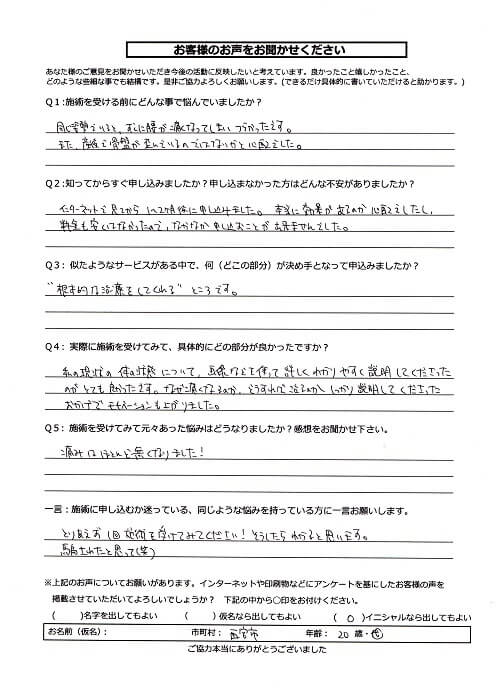 お客様のお声をお聞かせください
あなた様のご意見をお聞かせいただき今後の活動に反映したいと考えています。良かったこと嬉しかったこと、
どのような些細な事でも結構です。是非ご協力よろしくお願いします。(できるだけ具体的に書いていただけると助かります。)
Q1:施術を受ける前にどんな事で悩んでいましたか?
同じ姿勢でいると、すぐに腰が痛くなってしまいつらかったです。
また、産後で骨盤が歪んでいるのではないかと心配でした。
Q2:知ってからすぐ申し込みましたか?申し込まなかった方はどんな不安がありましたか?
インターネットで見てから1〜2ヶ月後に申し込みました。本当に効果があるのか心配でしたし、
料金も安くはなかったので、なかなか申し込むことが出来ませんでした。
Q3:似たようなサービスがある中で、何(どこの部分)が決め手となって申込みましたか?
"根本的な治療をしてくれる"ところです。
Q4:実際に施術を受けてみて、具体的にどの部分が良かったですか?
私の現状の体の状態について、画像などを使って詳しくわかりやすく説明してくださった
のがとても良かったです。なぜ痛くなるのか、どうすれば治るのか、しっかり説明してくださった
おかげでモチベーションも上がりました。
Q5:施術を受けてみて元々あった悩みはどうなりましたか?感想をお聞かせ下さい。
痛みはほとんど無くなりました!
一言:施術に申し込むか迷っている、同じような悩みを持っている方に一言お願いします。
とりあえず1回施術を受けてみてください!そうしたらわかると思います。
騙されたと思って(笑)
※上記のお声についてお願いがあります。インターネットや印刷物などにアンケートを基にしたお客様の声を
掲載させていただいてよろしいでしょうか? 下記の中から○印をお付けください。
( )名字を出してもよい ( )仮名なら出してもよい ( ○ )イニシャルなら出してもよい
お名前(仮名): 市町村: 西宮市 年齢: 20 歳・代
ご協力本当にありがとうございました